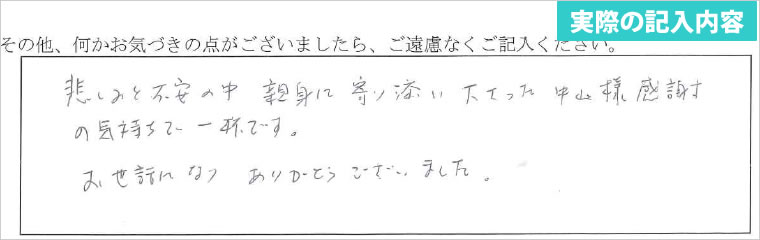 実際の記入内容
その他、何かお気づきの点がございましたら、ご遠慮なくご記入ください。
悲しみと不安の中 親身に寄り添い下さった 中山様 感謝
の気持ちで一杯です。
お世話になり ありがとうございました。